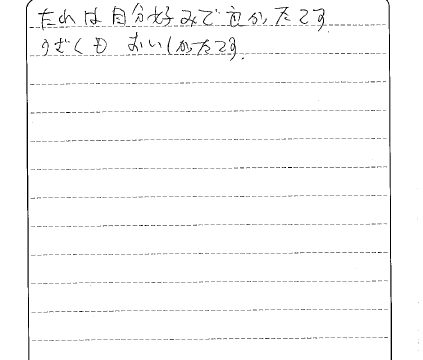 たれは自分好みで良かったです
うざくも おいしかったです.